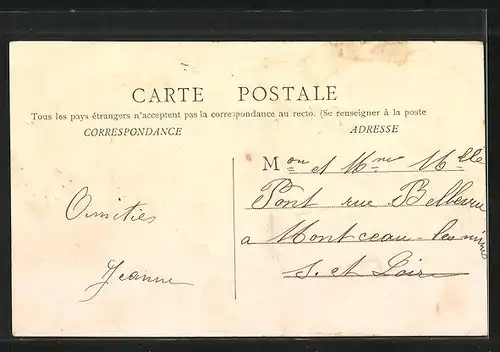 CARTE POSTALE
Tous les pays étrangers n'acceptent pas la correspondance au recto. (Se renseigner à la poste
CORRESPONDANCE
ADRESSE
Mon et Mme Mlle
Pont rue Bellevue
a Montceau-les-mines
S. et Loire
Amitiés
Jeanne